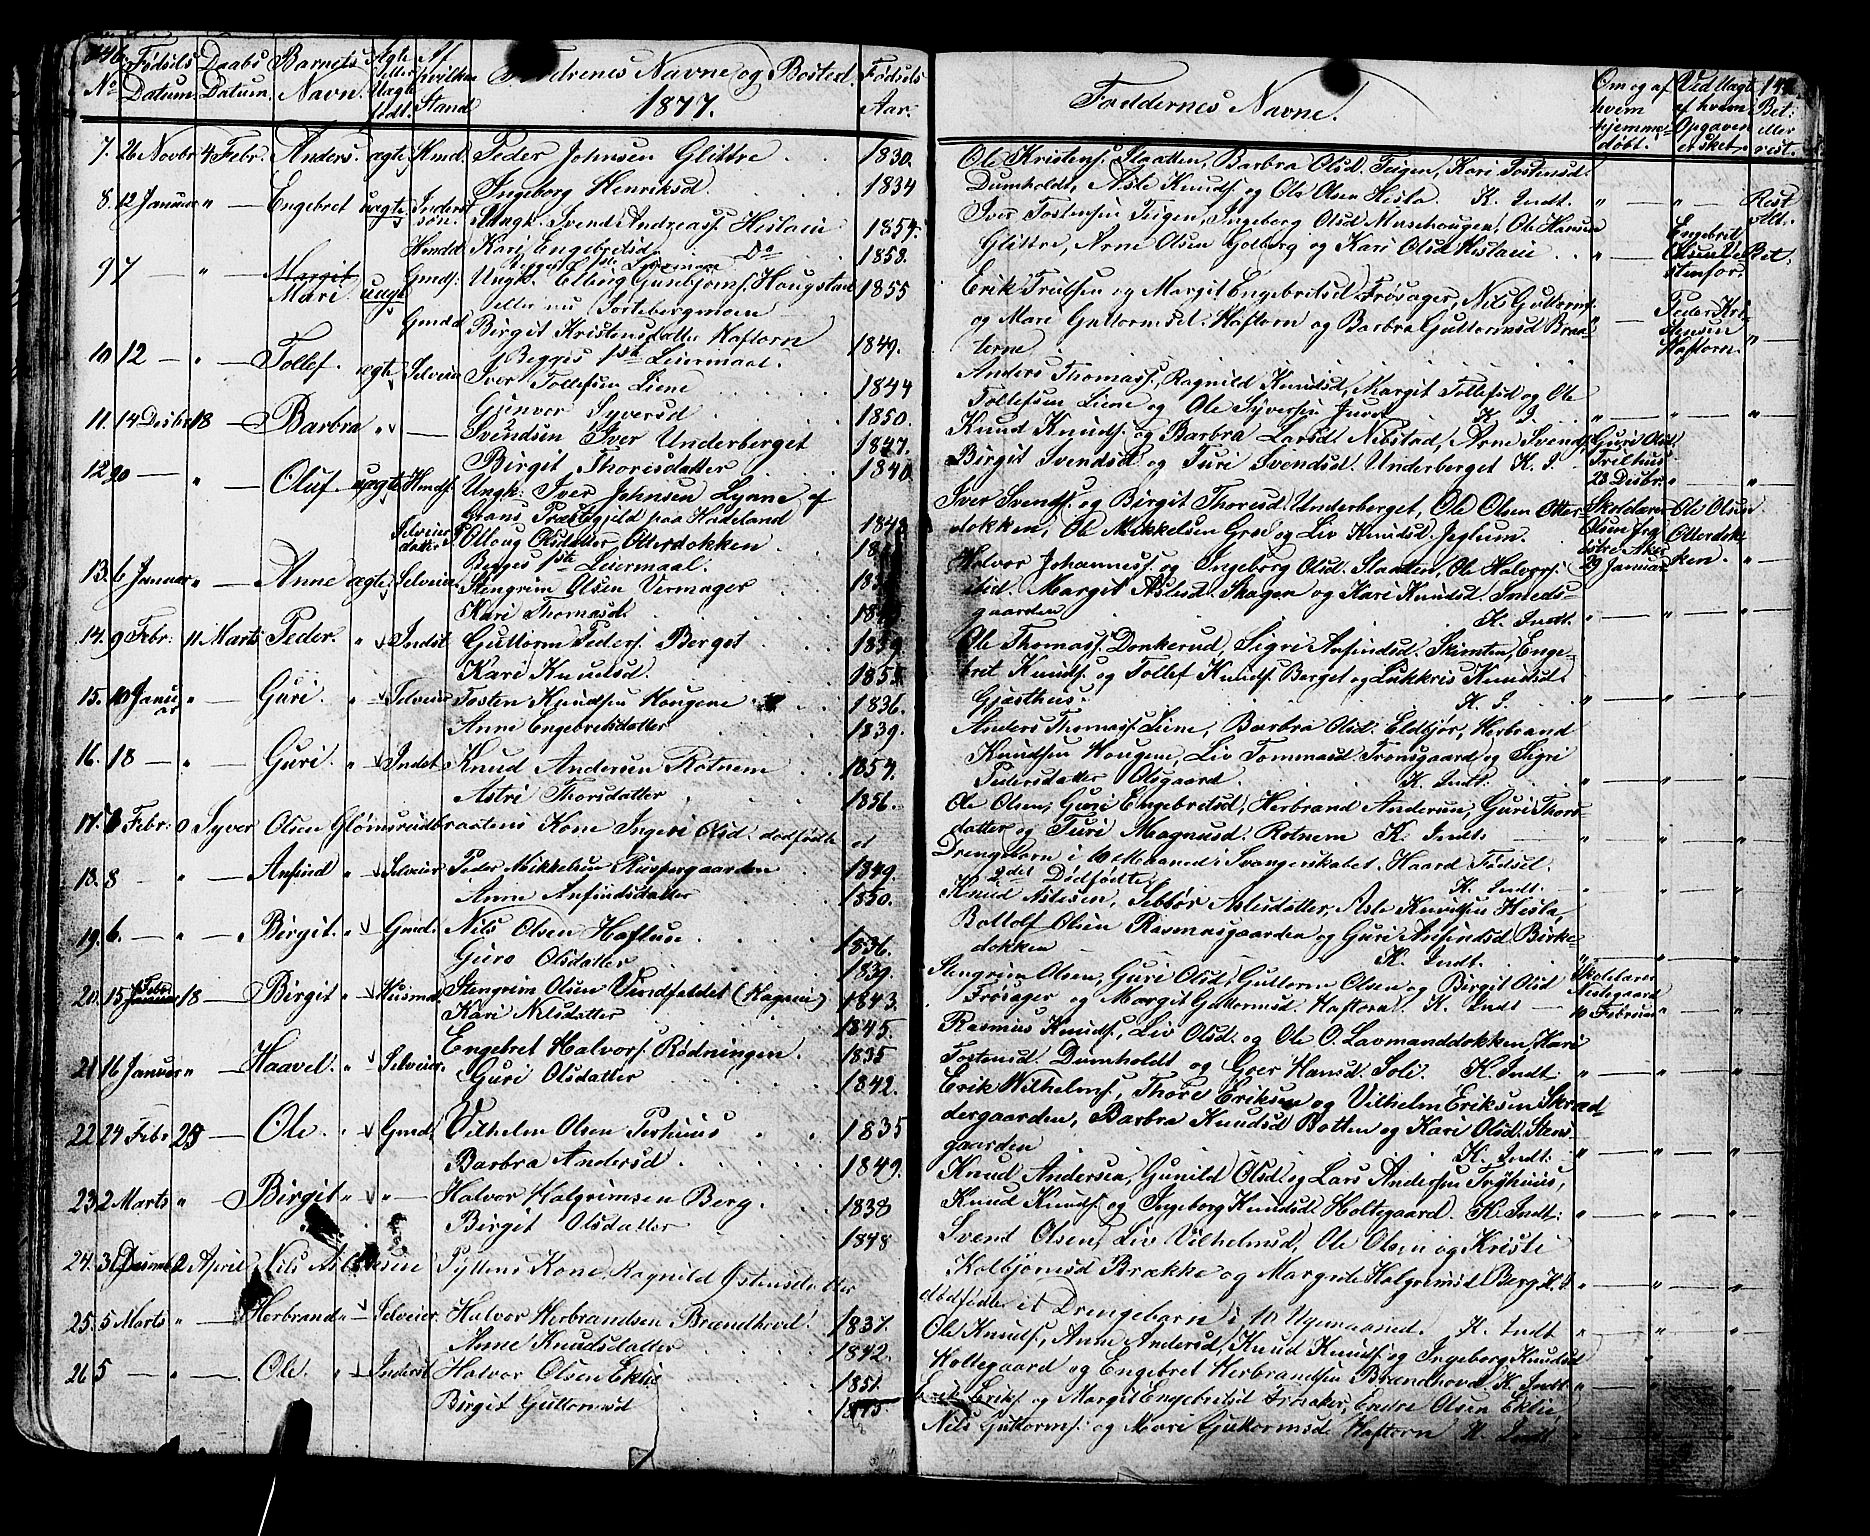 146.
Fødsels Daabs Barnets Ægte Af Forældrenes Navne og Bosted. Fødsels
No Datum Datum. Navn. eller Uægte født. hvilken Stand 1877. Aar.
7. 26 Novbr 4 Febr. Anders. ægte Hmd. Peder Johnsen Glittre 1830.
Ingeborg Henriksd. 1834
8. 12 Januar " — Engebret uægte Inderst Ungk. Svend Andreass. Heslaei 1854.
Kari Engebretsd. Do 1858.
9 7 — " — Margit Mari uægt Gmds: Ungk. Elling Gunbjorns. Hougstad 1855
eller nu Sortebergmoen
Gmdd Birgit Kristensdatter Haftorn 1849.
Begges 1ste Leiermaal.
10 12 — " — Tollef. ægte Selveier Iver Tollefsen Liene 1844
Gunvor Syversd. 1850.
11. 14 Desbr 18 — Barbra " — Svendsen Iver Underberget 1847.
Birgit Thorisdatter 1840.
12 20 — " — Oluf. uægte Hmds. Ungk: Iver Johnsen Lynne af
Grans Præstegjeld paa Hadeland 1848
Selveier datter Ollaug Olsdatter Otterdokken
Begges 1ste Leiermaal.
13. 6 Januar " — Anne ægte Selveier Stengrim Olsen Vermager
Kari Thomasd.
14. 9 Febr: 11 Marts Peder. " Indst Guttorm Peders. Berget 1839
Kari Knudsd.
15. 10 Januar " — Guri. " Selveier Tosten Knudsen Hougene 1836.
Anne Engebretsdatter 1839.
16. 18 — " — Guri. " Indst Knud Andersen Rotnem 1854.
Astri Thorsdatter 1856.
17. 8 Febr: 0 Syver Olsen Glömsrudbraatens Kone Ingeri Olsd. dødfødte et
18. 8 — " — Anfind " Selveier Peder Mikkelsen Ruspergaarden 1849.
Anne Anfindsdatter 1850.
19. 6. — " — Birgit. " Gmd. Nils Olsen Haftun 1836.
Guro Olsdatter 1839.
20. 15 Febr 18 — Birgit " Husmd. Stengrim Olsen Vindfaldet (Hagene) 1843.
Kari Nilsdatter 1845.
21 16 Januar " — Haavel. " Selveier. Engebret Halvors. Rödningen. 1835
Guri Olsdatter 1842.
22 24 Febr 25 — Ole. " Gmd. Vilhelm Olsen Perhuus 1835
Barbra Andersd. 1849.
23 2 Marts " — Birgit " " Halvor Halgrimsen Berg. 1838
Birgit Olsdatter 1848
24. 3 2 April Nils Pyttens Kone Ragnild Østensdatter
25. 5 Marts " — Herbrand " Selveier Halvor Herbrandsen Brændhovd. 1837.
Anne Knudsdatter 1842.
26 5 — " — Ole. " Inderst Halvor Olsen Eklie 1851.
Birgit Guttormsd.
Faddernes Navne.
Om og af hvem hjemmedøbt.
Ved Uægte af hvem Opgaven er sket.
Bet. eller rest.
Ole Kristens. Slaatten, Barbra Olsd. Teigen, Kari Tostensd.
Dumholdt, Asle Knuds. og Ole Olsen Hesla. K. Indt. " — " — Rest
Iver Tostensen Teigen, Ingeborg Olsd Mushougen, Ole Hansen
Glittre, Arne Olsen Golberg og Kari Olsd Heslaei Engebrit Olsen Bet.
Erik Trulsen og Margit Engebritsd Frøsager, Nils Guttorms.
og Mari Guttormsd. Haftorn og Barbra Guttormsd Braaterne Peder Kristensen Haftorn.
Anders Thomass., Ragnild Knudsd, Margit Tollefsd og Ole
Tollefsen Liene og Ole Syversen Juvet K. I.
Knud Knuds. og Barbra Larsd. Nibstad, Arne Svends., Guri Olsd.
Birgit Svendsd. og Turi Svendsd. Underberget K. I. 28 Desbr.
Iver Svends. og Birgit Thoresd. Underberget, Ole Olsen Otter- Skolelærer Ole Olsen
dokken, Ole Mikkelsen Gree og Liv Knudsd. Jeglum. Otterdokken.
Halvor Johanness. og Ingeborg Olsd. Slaatten, Ole Halvors. 29 Januar
Margit Aslesd. Skagen og Kari Knudsd. Smeds-
gaarden K. Indt.
Ole Thomass. Donkerud, Sigri Anfindsd. Skinten, Enge-
bret Knuds. og Tollef Knuds. Berget og Lukkris Knudsd.
Gjæsthus. K. I.
Anders Thomass. Liene, Barbra Olsd. Eldbjør, Herbrand
Knudsen Hougene, Liv Tommasd. Trønsgaard og Sigri
Pedersdatter Olsgaard K. Indt.
Ole Olsen, Guri Engebretsd, Herbrand Andersen, Guri Thors-
datter og Turi Magnusd. Rotnem K. Indt.
Drengebarn i 10 Maaned i Svangerskabet. Haard Fødsel.
2det Dødfødte. K. Indt.
Knud Aslesen, Sebbør Aslesdatter, Asle Knudsen Hesla,
Bottolf Olsen Rasmusgaarden og Guri Anfindsd. Birke-
dokken K. Indt.
Stengrim Olsen, Guri Olsd, Guttorm Olsen og Birgit Olsd Skolelærer
Frøsager og Margit Guttormsd. Haftorn K. Indt — Nestegaard 10 Februar
Rasmus Knuds., Liv Olsd. og Ole O. Lavmanddokken, Kari
Tostensd. Dumholdt og Goer Hansd. Soli. K. Indt.
Erik Wilhelms., Thore Eriksen og Vilhelm Eriksen Skrad
dergaarden, Barbra Knudsd Botten og Kari Olsd. Stens-
gaarden K. Indt.
Knud Andersen, Gunild Olsd. og Lars Andersen Frøhuus,
Knud Knuds. og Ingeborg Knudsd Holtegaard. K. Indt.
Svend Olsen, Liv Vilhelmsd, Ole Olsen og Kristi
Kolbjönsd Brække og Margrete Halgrimsd Berg. K. I
dødfødte et Drengebarn i 10 Ugemaaned. K. Indt
Ole Knuds., Anne Andersd, Knud Knuds. og Ingeborg Knudsd
Holtegaard og Engebret Herbrandsen Brændhovd K. Indt
Erik Eriks. og Margit Engebretsd Frøsaker, Endre Olsen Eklie,
Nils Guttorms. og Mari Guttormsd. Haftorn K. Indt